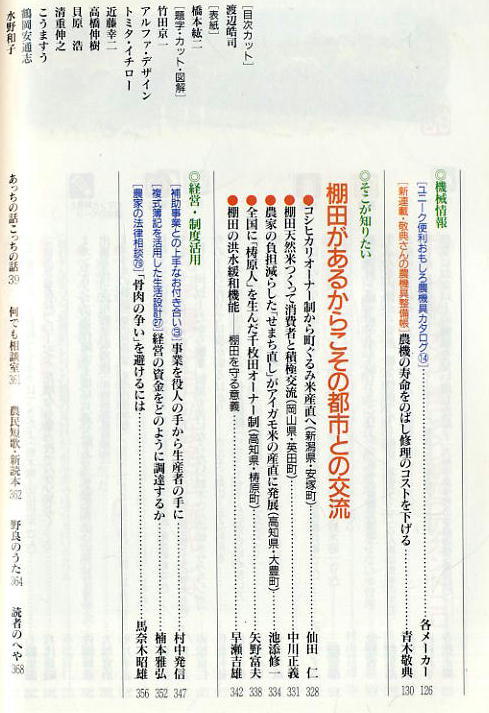 ◎機械情報
[ユニーク便利おもしろ農機具カタログ⑭]……各メーカー 126
[新連載・敬典さんの農機具整備帳]農機の寿命をのばし修理のコストを下げる……青木敬典 130
◎そこが知りたい
棚田があるからこその都市との交流
●コシヒカリオーナー制から町ぐるみ米産直へ(新潟県・安塚町)……仙田 仁 328
●棚田天然米つくって消費者と積極交流(岡山県・英田町)……中川正義 331
●農家の負担減らした「せまち直し」がアイガモ米の産直に発展(高知県・大豊町)……池添修一 334
●全国に「梼原人」を生んだ千枚田オーナー制(高知県・梼原町)……矢野富夫 338
●棚田の洪水緩和機能――棚田を守る意義……早瀬吉雄 342
◎経営・制度活用
[補助事業との上手なお付き合い⑬]事業を役人の手から生産者の手に……村中発信 347
[複式簿記を活用した生活設計㉗]経営の資金をどのように調達するか……楠本雅弘 352
[農家の法律相談㊆]「骨肉の争い」を避けるには……馬奈木昭雄 356
あっちの話こっちの話 39
何でも相談室 361
農民短歌・新読本 362
野良のうた 364
読者のへや 368
[目次カット]
渡辺皓司
[表紙]
橋本紘二
[題字・カット・図解]
竹田京一
アルファ・デザイン
トミタ・イチロー
近藤幸二
高橋伸樹
貝原 浩
清重伸之
こうますう
鶴岡安通志
水野和子